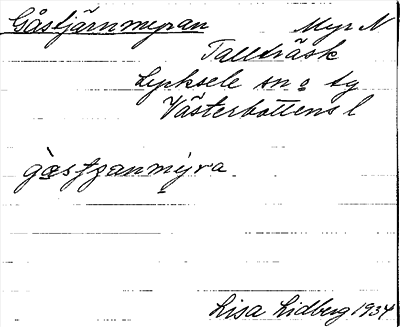 Gåstjärnmyran Myr N
Tallträsk
Lycksele sn o ty
Västerbottens l
Lisa Lidberg 1934